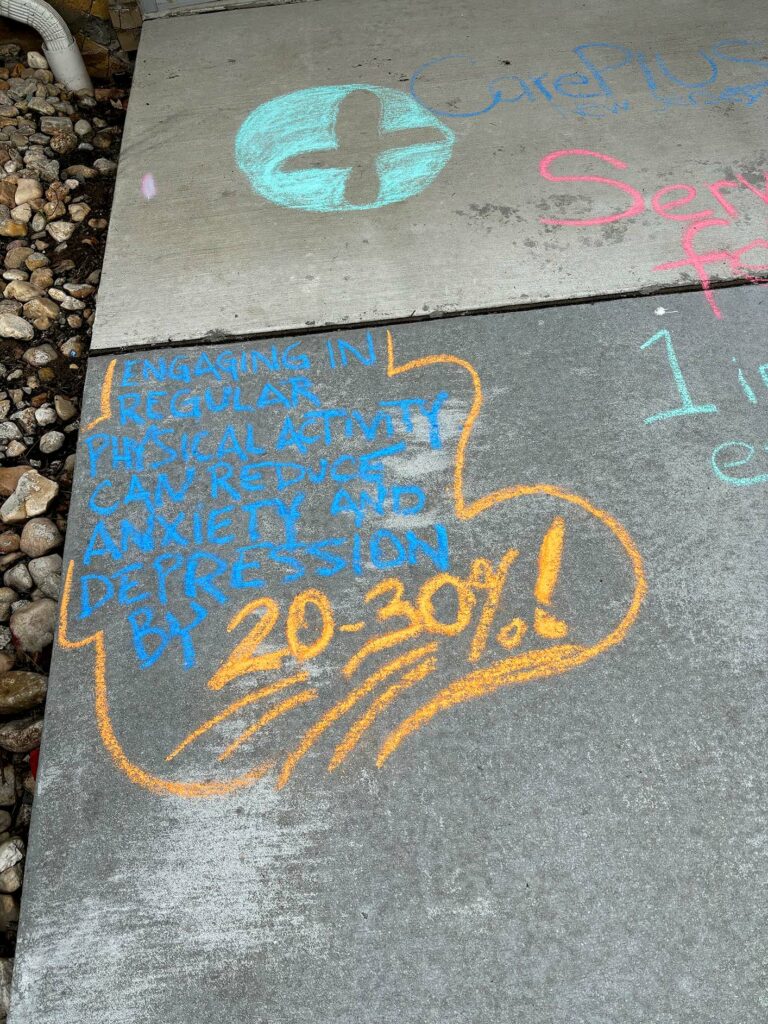 CarePlUS
New Jersey
Serv
fo
1 in
ENGAGING IN
REGULAR
PHYSICAL ACTIVITY
CAN REDUCE
ANXIETY AND
DEPRESSION
BY 20-30%!